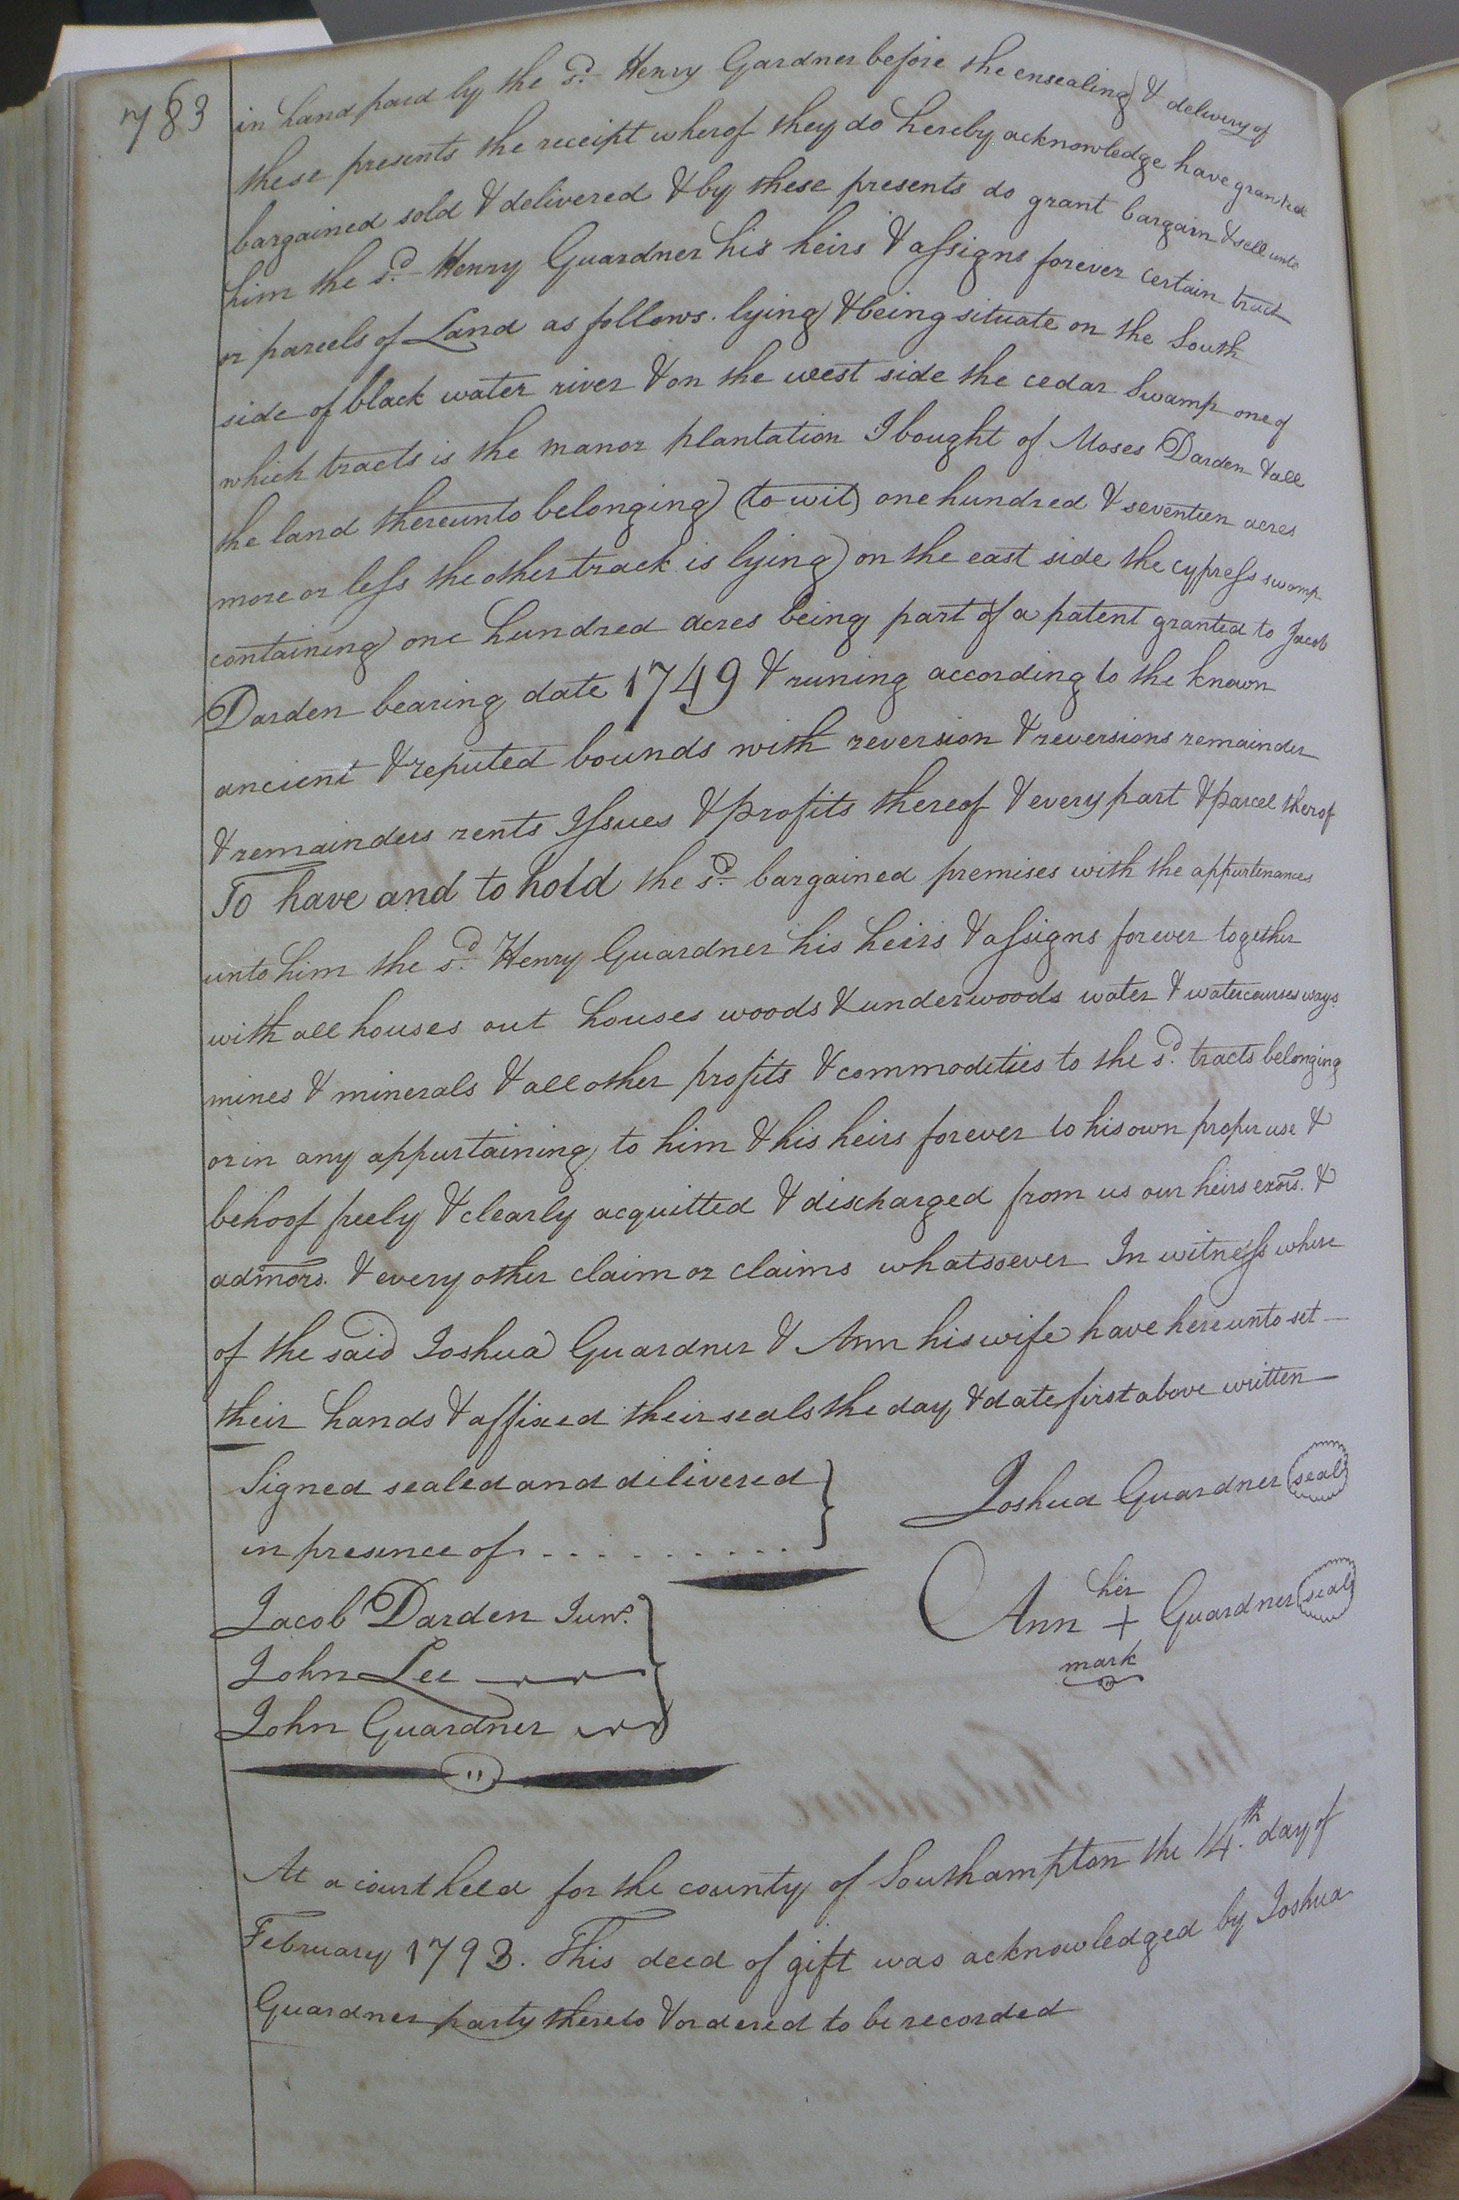 783
in hand paid by the sd. Henry Gardner before the ensealing & delivery of
these presents the receipt wherof they do hereby acknowledge have granted
bargained sold & delivered & by these presents do grant bargain & sell unto
him the sd. Henry Guardner his heirs & assigns forever certain tract
or parcels of Land as follows. lying & being situate on the South
side of black water river & on the west side the cedar Swamp one of
which tracts is the manor plantation I bought of Moses Darden & all
the land thereunto belonging (to wit) one hundred & seventeen acres
more or less the other track is lying on the east side the cypress swamp
containing one hundred acres being part of a patent granted to Jacob
Darden bearing date 1749 & runing according to the known
ancient & reputed bounds with reversion & reversions remainder
& remainders rents Issues & profits thereof & every part & parcel therof
To have and to hold the sd. bargained premises with the appurtenances
unto him the sd. Henry Guardner his heirs & assigns forever together
with all houses out houses woods & underwoods water & watercourses ways
mines & minerals & all other profits & commodities to the sd. tracts belonging
or in any appurtaining to him & his heirs forever to his own proper use &
behoof freely & clearly acquitted & discharged from us our heirs exors. &
admors. & every other claim or claims whatsoever In witness where
of the said Joshua Guardner & Ann his wife have hereunto set
their hands & affixed their seals the day & date first above written
Signed sealed and dilivered
in presence of . . . . . . . . . .
Joshua Guardner seal
Jacob Darden Junr.
John Lee
John Guardner
her
Ann + Guardner seal
mark
At a court held for the county of Southampton the 14.th day of
February 1793. This deed of gift was acknowledged by Joshua
Guardner party thereto & ordered to be recorded